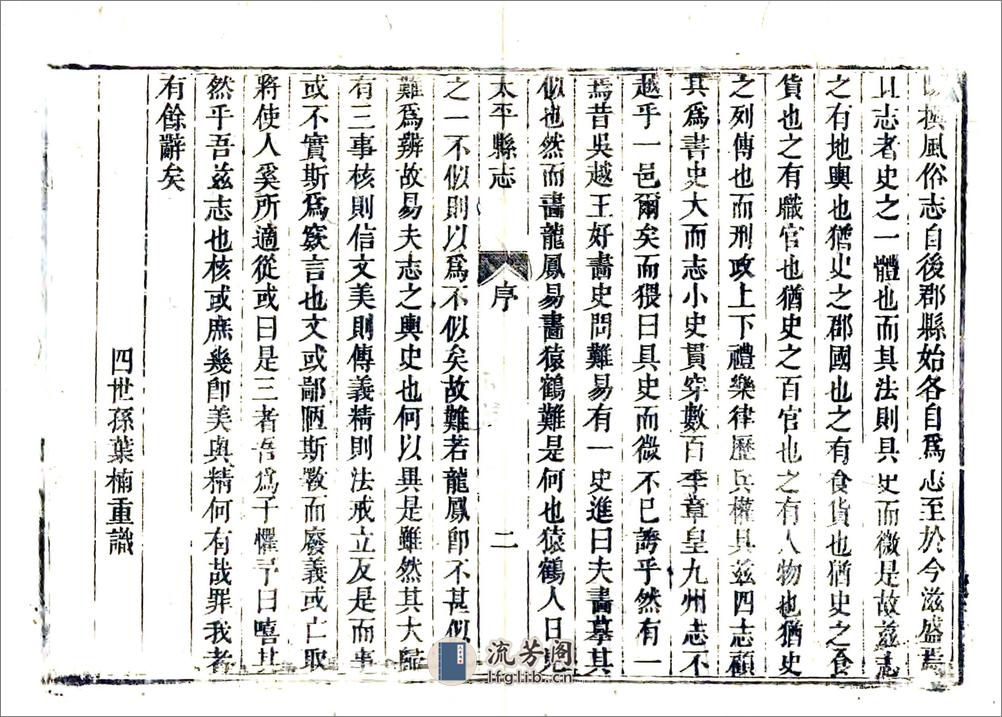 撰風俗志自後郡縣始各自爲志至於今滋盛焉
且志者史之一體也而其法則具史而微是故茲志
之有地輿也猶史之郡國也之有食貨也猶史之食
貨也之有職官也猶史之百官也之有人物也猶史
之列傳也而刑政上下禮樂律歷兵權具茲四志顧
其爲書史大而志小史貫穿數百季章皇九州志不
越乎一邑爾矣而猥曰具史而微不已誇乎然有一
焉昔吳越王好畵史問難易有一史進曰夫畵摹其
似也然而畵龍鳳易畵猿鶴難是何也猿鶴人日見
太平縣志
序
二
之一不似則以爲不似矣故難若龍鳳卽不甚似
難爲辨故易夫志之與史也何以異是雖然其大歸
有三事核則信文美則傳義精則法戒立反是而事
或不實斯爲窾言也文或鄙陋斯斁而廢義或亡取
將使人奚所適從或曰是三者吾爲子懼予曰嘻其
然乎吾茲志也核或庶幾卽美與精何有哉罪我者
有餘辭矣
四世孫葉楠重識
流芳阁
lfglib.cn